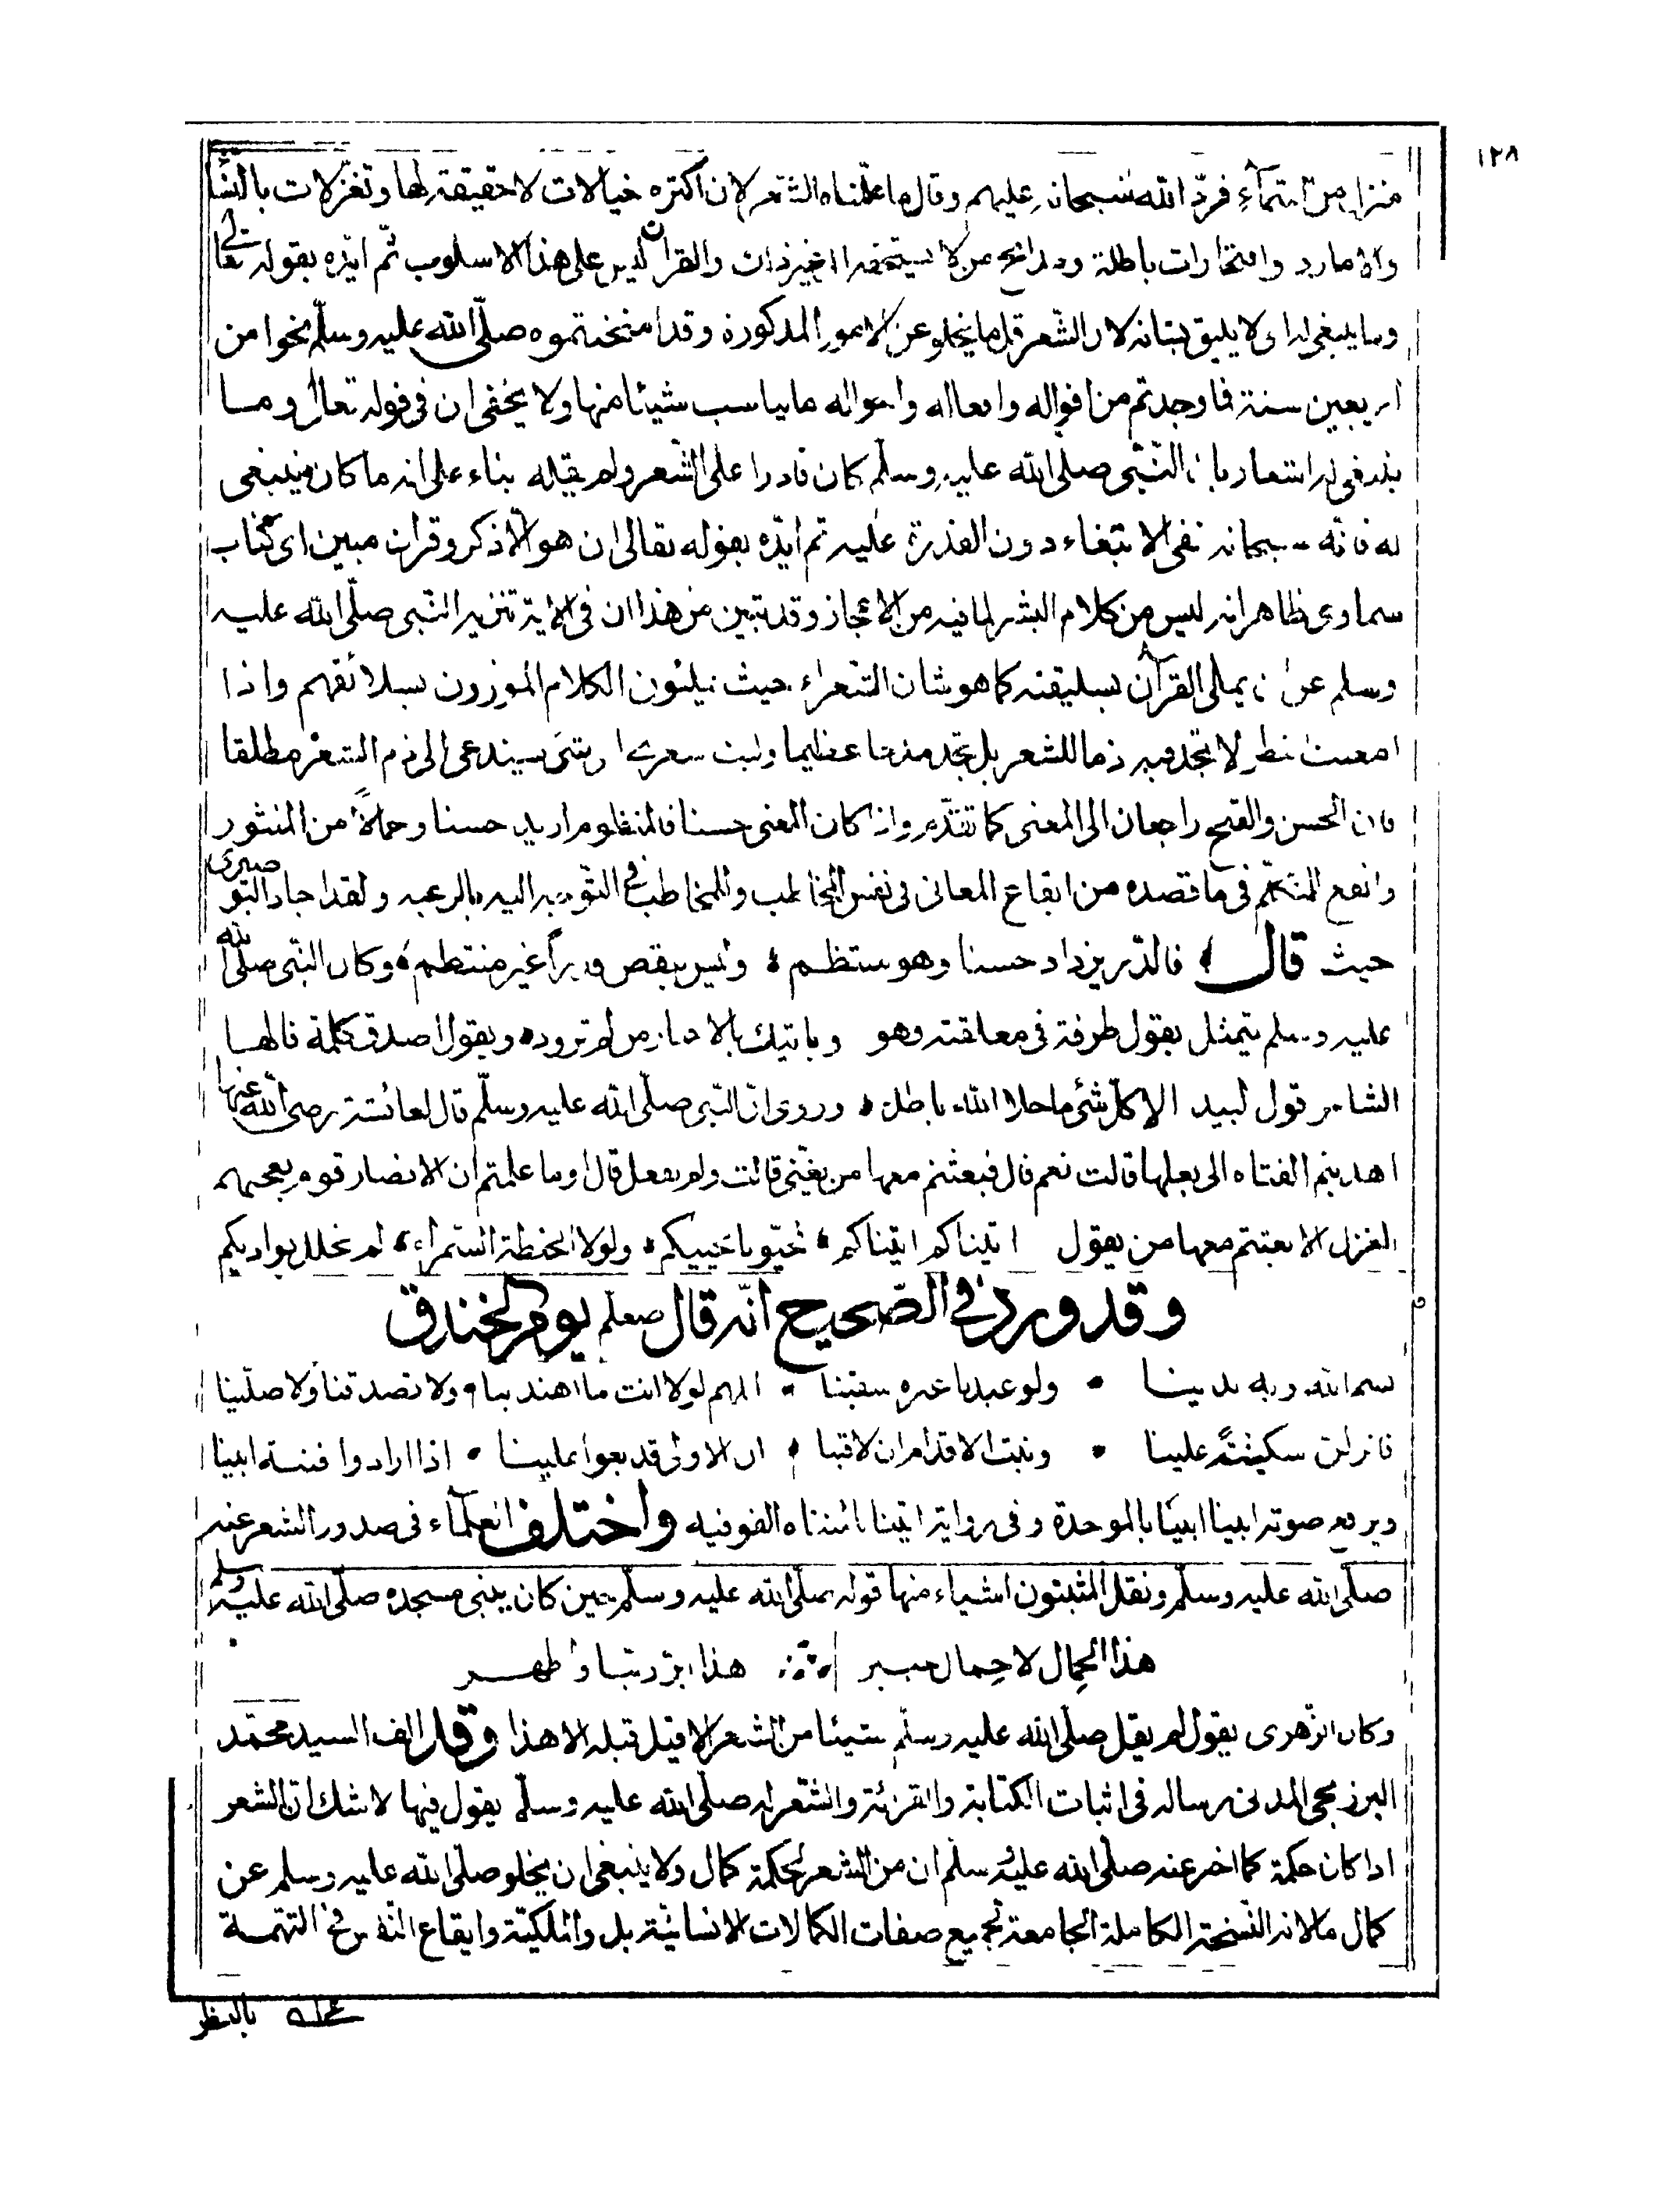 ١٢٨
منزل من السماء فردّ الله سبحانه عليهم وقال وما علمناه الشعر لان اكثره خيالات لا حقيقة لها وتغزلات بالنسا
والامارد وافتخارات باطلة ومدائح من لا يستحقها الى غير ذلك والقرآن ليس على هذا الاسلوب ثمّ ايّده بقوله تعالى
وما ينبغى له اى لا يليق بشانه لان الشعر قل ما يخلو عن الامور المذكورة وقد امتحنتموه صلّى الله عليه وسلّم نحوا من
اربعين سنة فما وجدتم من اقواله وافعاله واحواله ما يناسب شيئا منها ولا يخفى ان فى قوله تعالى وما
ينبغى له اشعار بان النّبى صلى الله عليه وسلّم كان قادرا على الشعر ولم يقله بناء على انه ما كان ينبغى
له فانّه سبحانه نفى الابتغاء دون القدرة عليه ثم ايّده بقوله تعالى ان هو الّا ذكر وقران مبين اى كتاب
سماوى ظاهر انه ليس من كلام البشر لما فيه من الاعجاز وقد تبين من هذا ان فى الاية تنزيه النّبى صلّى الله عليه
وسلم عن ان يملى القرآن بسليقته كما هو شان الشعراء حيث يملئون الكلام الموزون بسلائقهم واذا
امعنت نظر لا تجد فيه ذما للشعر بل تجد مدحا عظيما وليت شعرى اى شئ يستدعى الى ذم الشعر مطلقا
فان الحسن والقبح راجعان الى المعنى كما تقدّم واذا كان المعنى حسنا فالمنظوم ازيد حسنا وحلاً من المنثور
وانفع للمتكلّم فى ما قصده من ايقاع المعانى فى نفس المخاطب وللمخاطب فى التوجه اليه بالرغبه ولقد اجاد البوصيرى
حيث قال فالدّر يزداد حسنا وهو منتظم وليس ينقص قدراً غير منتظم وكان النّبى صلّى الله
عليه وسلم يتمثل بقول طرفة فى معلقته وهو وياتيك بالاخبار من لم تزود ويقول اصدق كلمة قالها
الشاعر قول لبيد الا كلّ شئ ما خلا الله باطل وروى انّ النّبى صلّى الله عليه وسلّم قال لعائشة رضى الله عنها
اهديتم الفتاه الى بعلها قالت نعم قال فبعثتم معها من يغنّى قالت ولم نفعل قال اوما علمتم ان الانصار قوم يعجبهم
الغزل الا بعثتم معها من يقول اتيناكم اتيناكم فحيّونا نحييكم ولولا الحنطة السّمراء لم نحلل بواديكم
وقد ورد فى الصّحيح انّه قال صعلم يوم الخندق
بسم الله وبه بدينا ولو عبدنا غيره شقينا اللهم لولا انت ما اهتدينا ولا تصدقنا ولا صلّينا
فانزلن سكينةً علينا وثبت الاقدام ان لاقينا ان الاولى قد بغوا علينا اذا ارادوا فتنة ابينا
ويرفع صوته ابينا ابينا بالموحدة وفى رواية اتينا بالمثناه الفوقيه واختلف العلماء فى صدور الشعر عنه
صلّى الله عليه وسلّم ونقل المثبتون اشياء منها قوله صلّى الله عليه وسلّم حين كان يبنى مسجده صلّى الله عليه وسلم
هذا الحِمال لا حِمال خيبر هذا ابرّ ربّنا واطهر
وكان الزّهرى يقول لم يقل صلّى الله عليه وسلّم شيئا من الشعر الا قيل قبله الا هذا وقد الف السيد محمّد
البرزنجى المدنى رساله فى اثبات الكتابة والقرئة والشّعر له صلّى الله عليه وسلّم يقول فيها لا شك انّ الشعر
اذا كان حكمة كما اخبر عنه صلّى الله عليه وسلّم ان من الشعر لحكمة كمال ولا ينبغى ان يخلو صلّى الله عليه وسلم عن
كمال ما لانه النّسخة الكاملة الجامعة لجميع صفات الكمالات الانسانيّة بل والملكيّة وايقاع النقص فى التهمة
بالنظر